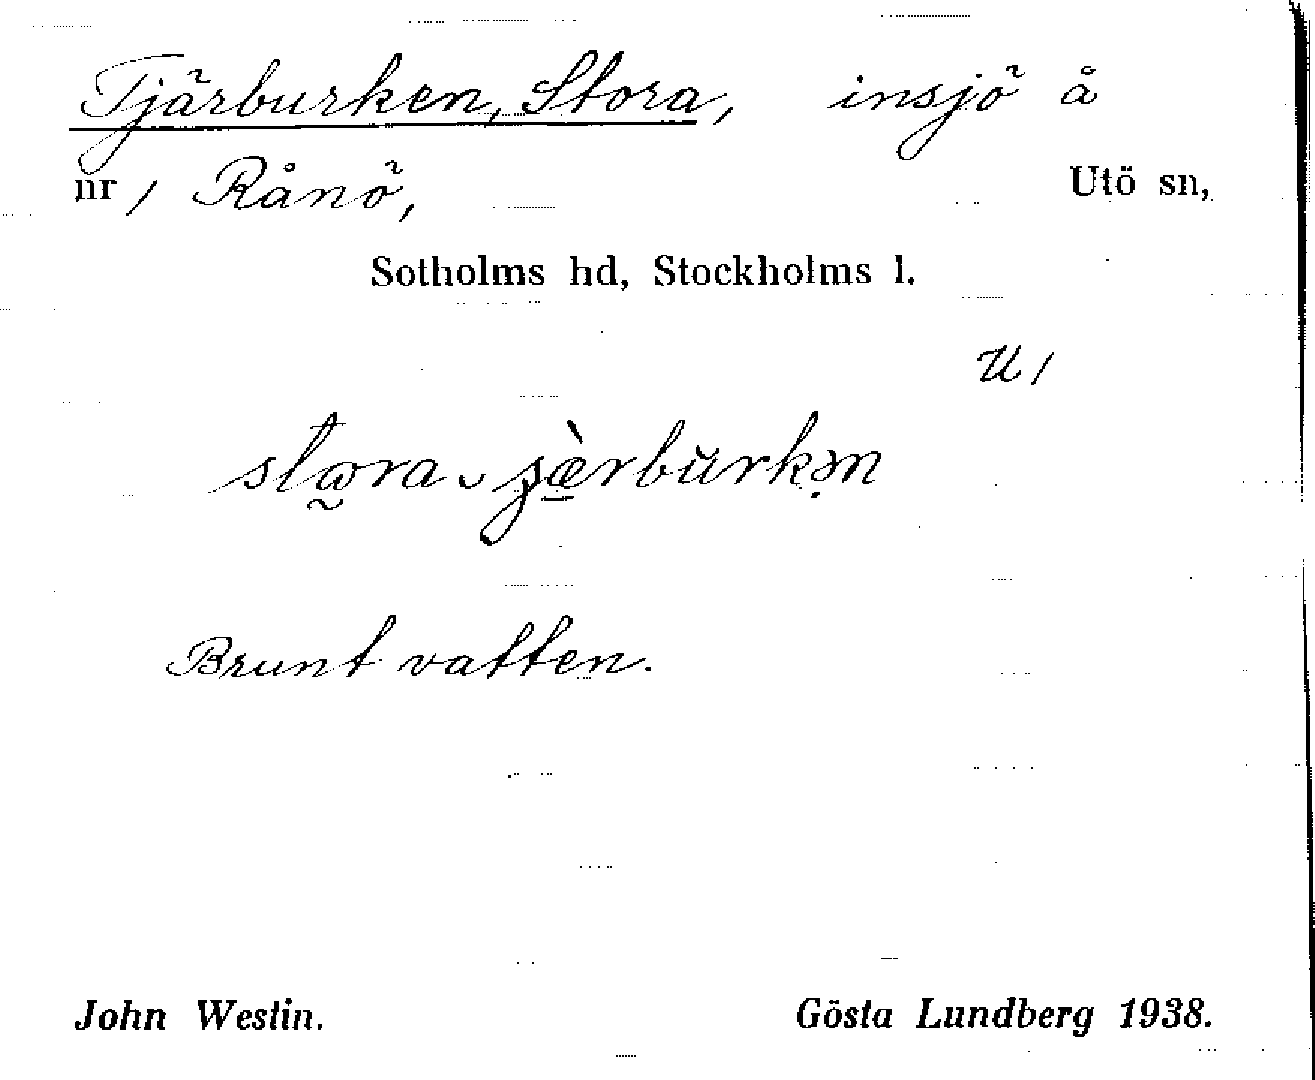 Tjärburken, Stora, insjö å
nr 1 Rånö, Utö sn,
Sotholms hd, Stockholms l.
U 1
Brunt vatten.
John Westin. Gösta Lundberg 1938.